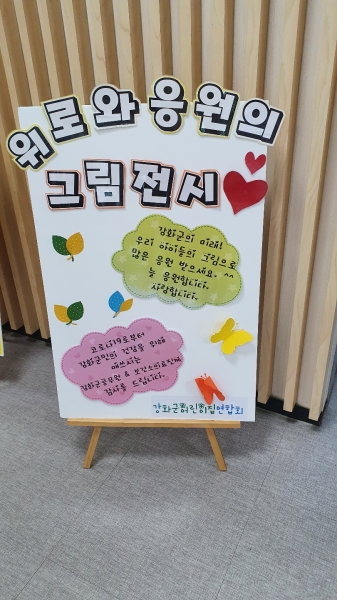 위로와 응원의
그림전시
강화군의 미래!
우리 아이들의 그림으로
많은 응원 받으세요. ^^
늘 응원합니다.
사랑합니다.
코로나19로부터
강화군민의 건강을 위해
애쓰시는
강화군공무원 & 보건소의료진께
감사를 드립니다.
강화군어린이집연합회